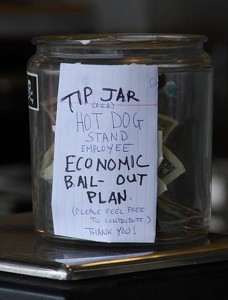 TIP JAR
(A.K.A.)
HOT DOG
STAND
EMPLOYEE
ECONOMIC
BAIL-OUT
PLAN.
(PLEASE FEEL FREE
TO CONTRIBUTE.)
THANK YOU!